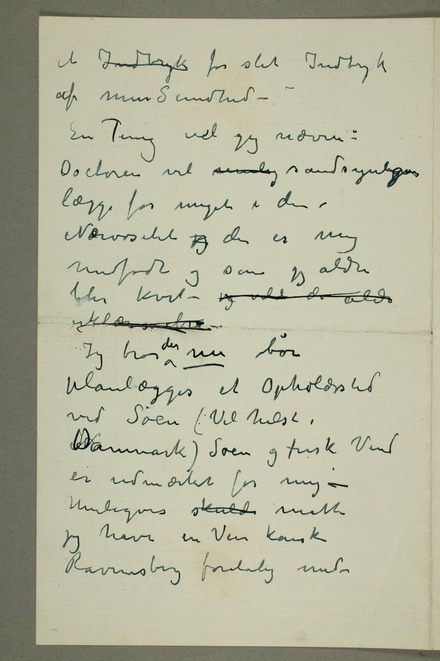 et Indtryk for slet Indtryk
af min Sundhed –
En Ting vil jeg nævne:
Doctoren vil sandsynligvis
lægge for meget i den
Nervøsitet der er mig
medfødt og som jeg aldri
blir kvit –
Jeg tror der nu bør
planlægges et Opholdssted
ved Søen (Vel helst i
Danmark) Søen og frisk Vind
er udmærket for mig –
Muligvis skulde matte
jeg have en Ven kanske
Ravensberg foreløbig med